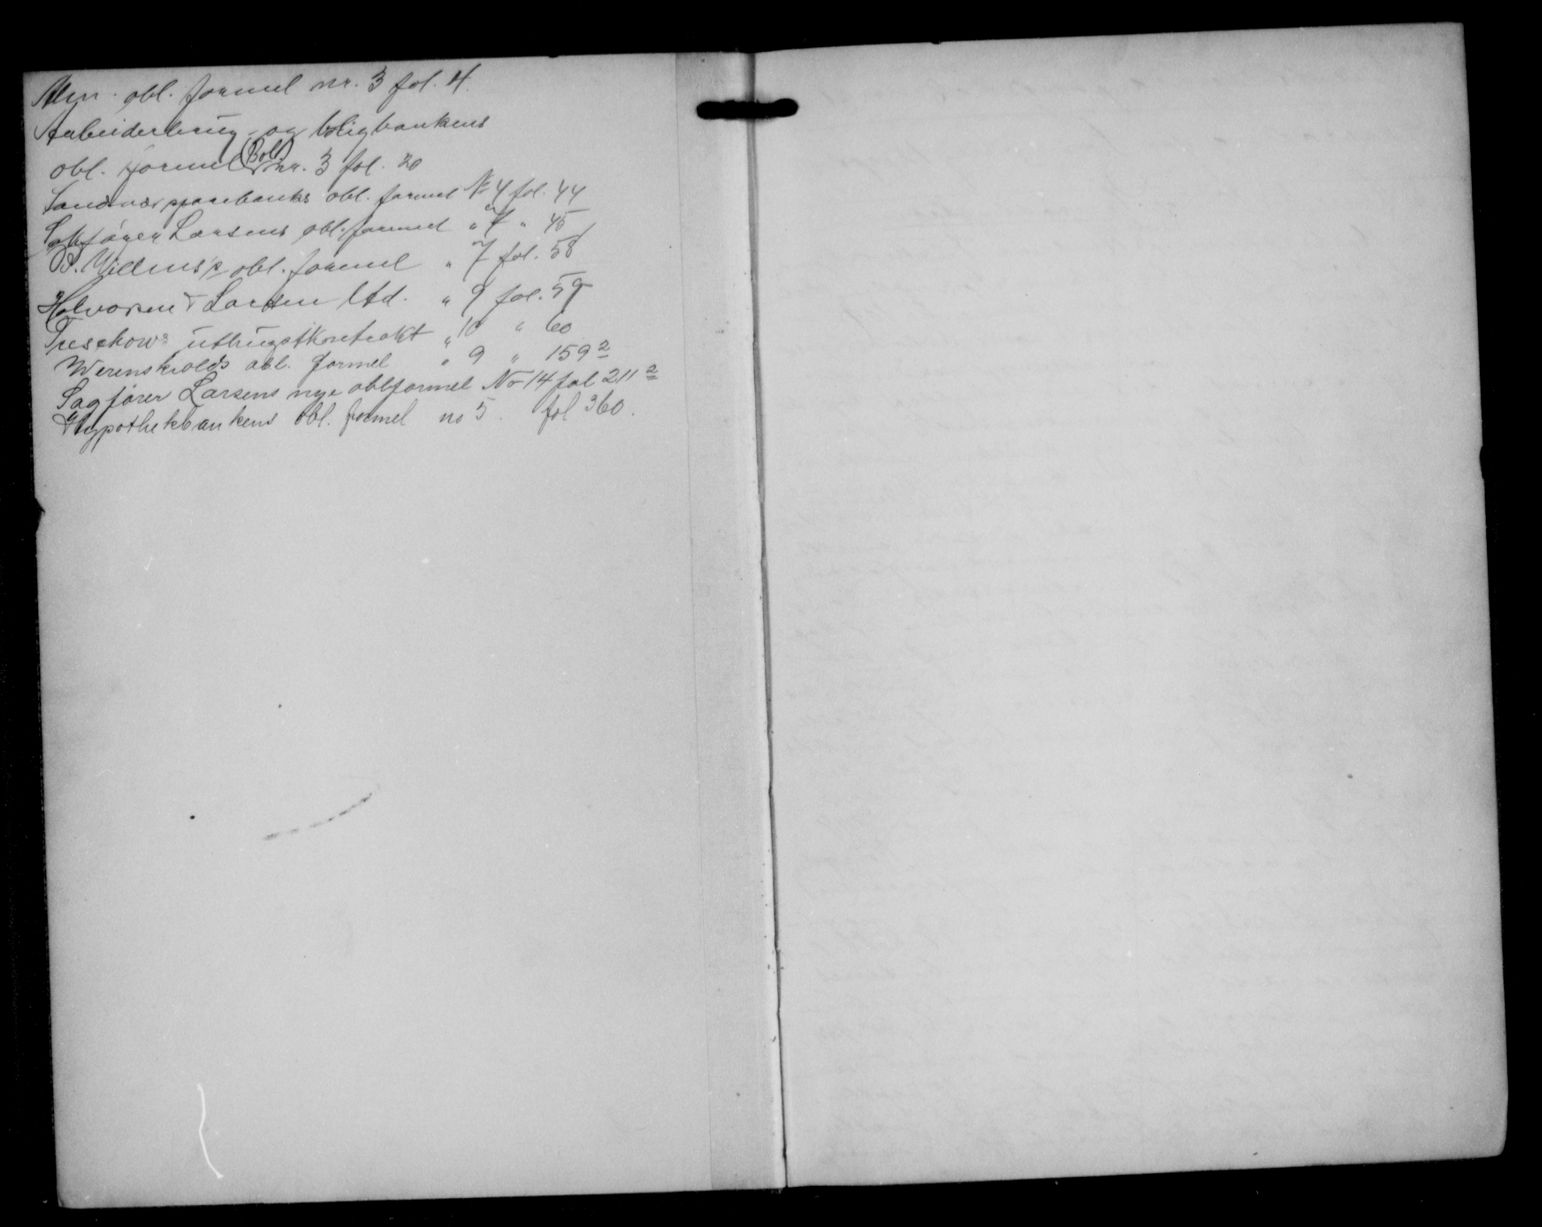 Alm. obl. formel nr. 3 fol. 4.
Arbeiderbrug- og boligbankens
obl. formel (Bol) nr. 3 fol. 20
Sandsvær sparebanks obl. formel No 4 fol. 44
Sakfører Larsens obl. formel " 7 " 45
obl. formel " 7 fol. 58
Halvorsen & Larsen ltd. " 9 fol. 59
Treschows utbrugstkontrakt " 10 " 60
Werenskiolds obl. formel " 9 " 159 2
Sagfører Larsens nye oblformel No 14 fol 211 2
Hypothekbankens obl. formel no 5. fol 360.